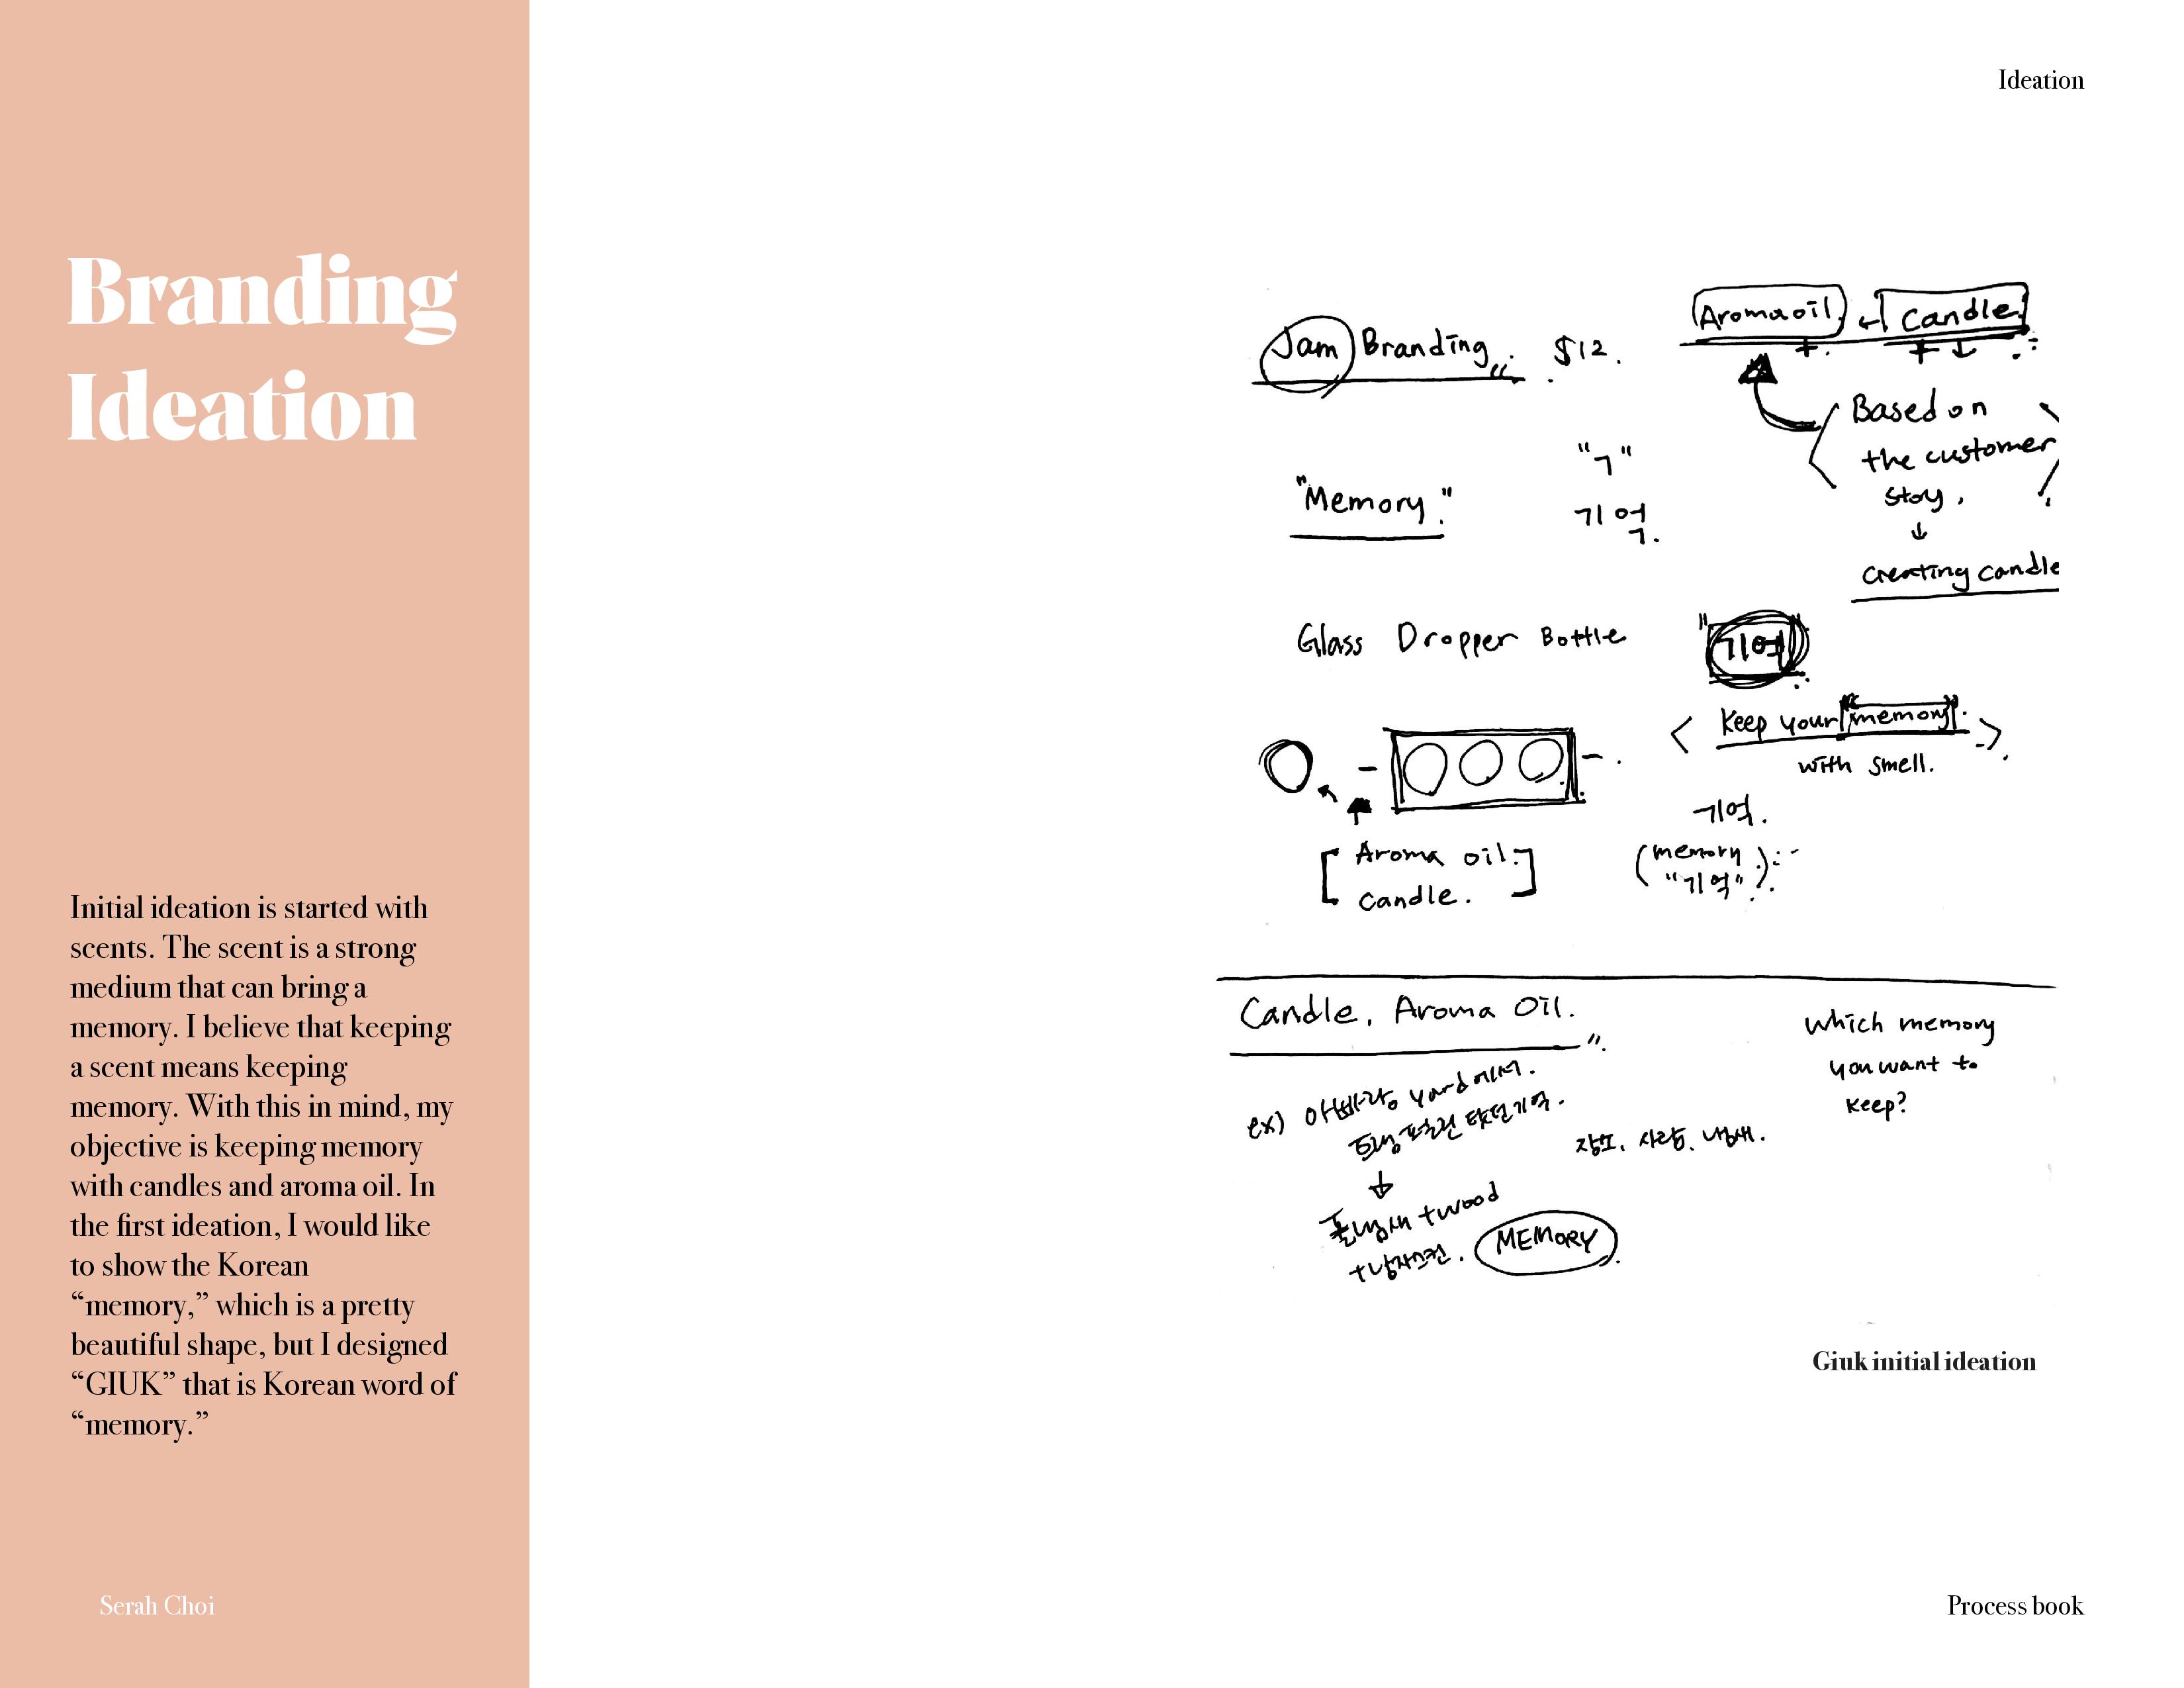 Ideation
Branding
Ideation
Initial ideation is started with
scents. The scent is a strong
medium that can bring a
memory. I believe that keeping
a scent means keeping
memory. With this in mind, my
objective is keeping memory
with candles and aroma oil. In
the first ideation, I would like
to show the Korean
“memory,” which is a pretty
beautiful shape, but I designed
“GIUK” that is Korean word of
“memory.”
Serah Choi
Jam Branding. $12.
Aroma oil
Candle
Based on
the customer
stoy.
creating candle
"Memory."
"ㄱ"
기억.
Glass Dropper Bottle
"기억"
Keep your "memory".
with smell.
Aroma oil.
candle.
기억.
(memory
"기억").
Candle, Aroma Oil.
ex) 아빠랑 yard에서.
탔던 기억.
풀냄새 + wood
MEMORY
장소, 사람, 냄새.
Which memory
you want to
keep?
Giuk initial ideation
Process book